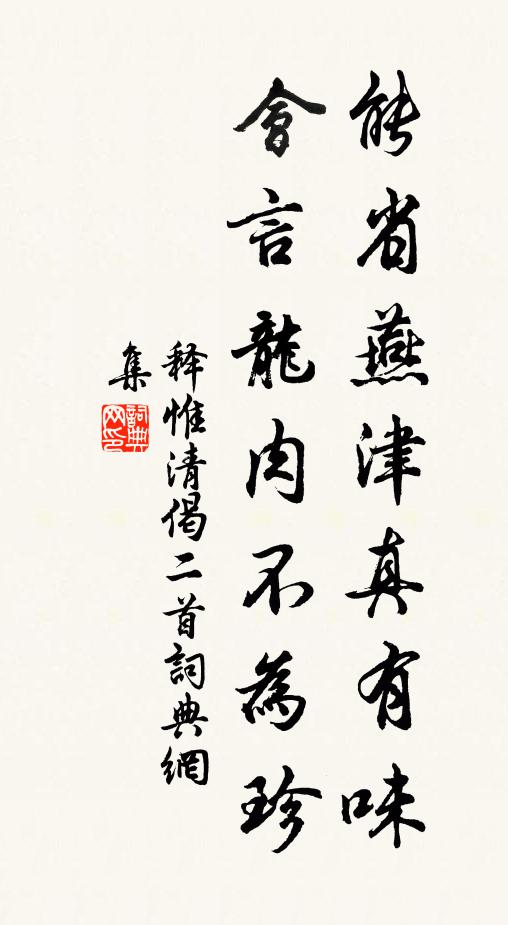 能省燕津真有味
會言龍肉不為珍
释惟清偈二首詞典網
集
詞典
网印